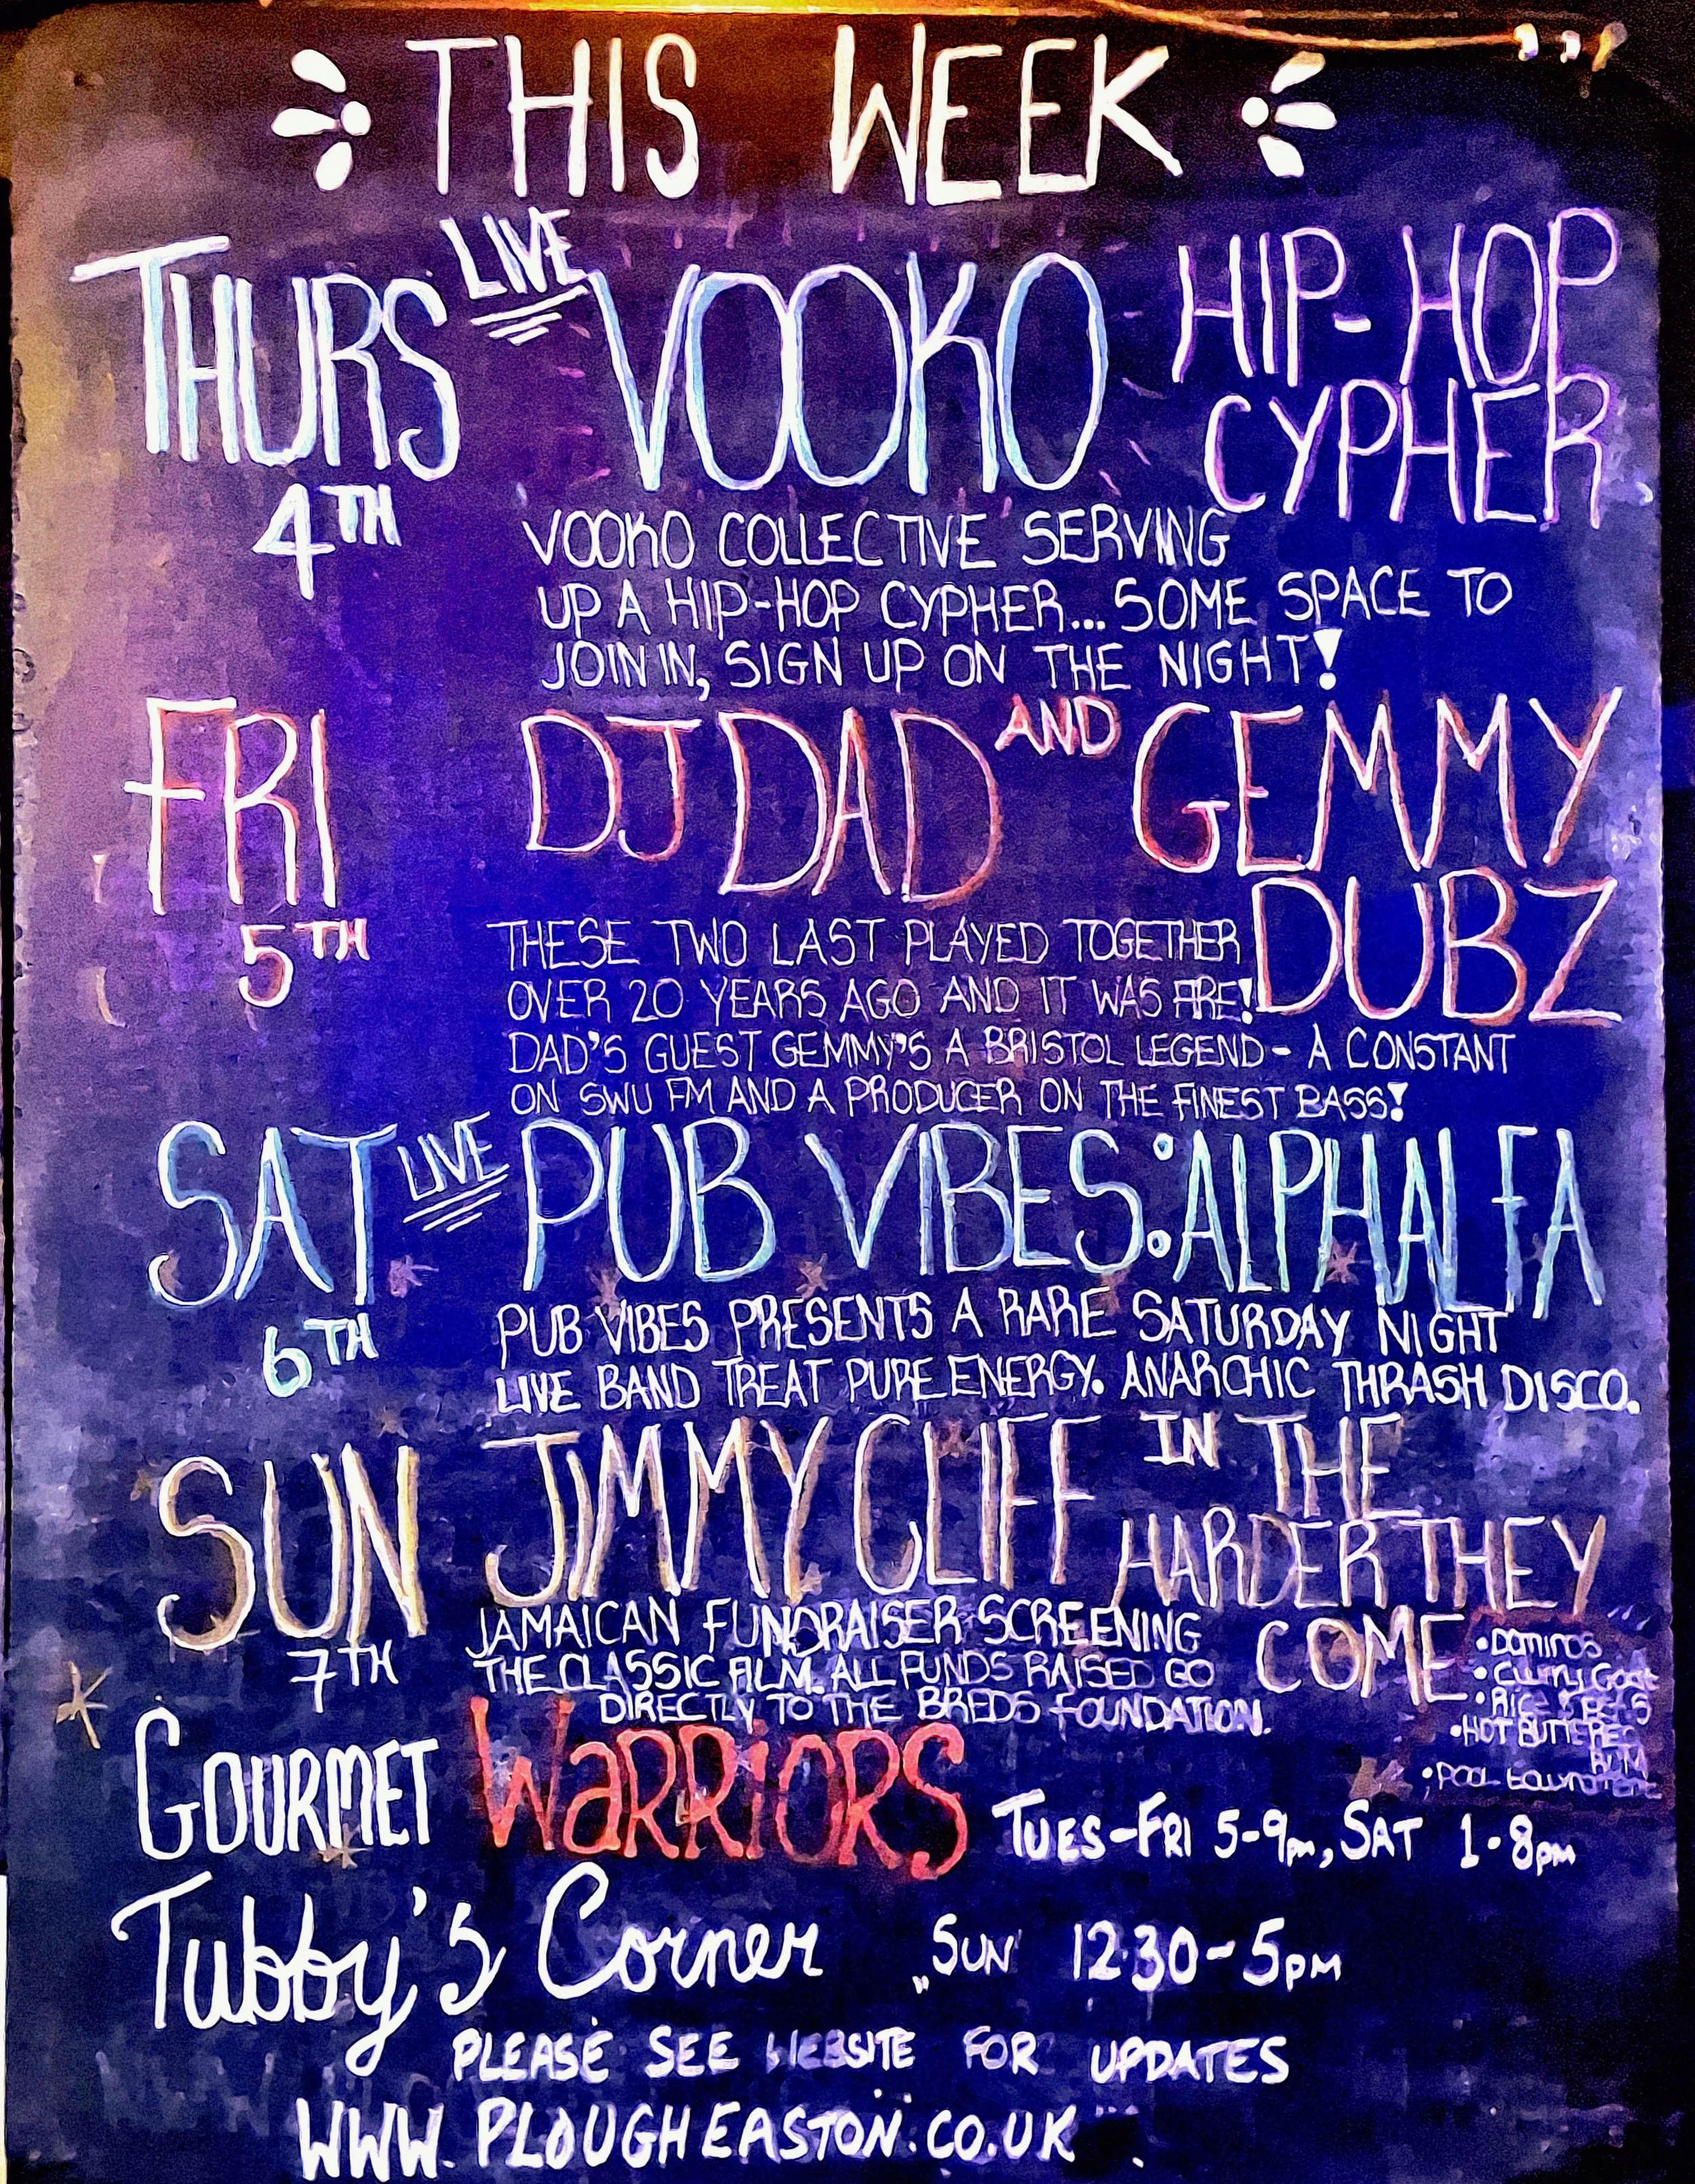 THIS WEEK
THURS LIVE VOOKO HIP-HOP
CYPHER
4TH
VOOKO COLLECTIVE SERVING
UP A HIP-HOP CYPHER... SOME SPACE TO
JOIN IN, SIGN UP ON THE NIGHT!
FRI DJ DAD AND GEMMY
DUBZ
5TH
THESE TWO LAST PLAYED TOGETHER
OVER 20 YEARS AGO AND IT WAS FIRE!
DAD'S GUEST GEMMY'S A BRISTOL LEGEND - A CONSTANT
ON SWU FM AND A PRODUCER ON THE FINEST BASS!
SAT LIVE PUB VIBES: ALPHALFA
6TH
PUB VIBES PRESENTS A RARE SATURDAY NIGHT
LIVE BAND TREAT PURE ENERGY. ANARCHIC THRASH DISCO.
SUN JIMMY CLIFF IN THE
HARDER THEY
COME
7TH
JAMAICAN FUNDRAISER SCREENING
THE CLASSIC FILM. ALL FUNDS RAISED GO
DIRECTLY TO THE BREDS FOUNDATION.
• DOMINOS
• CURRY GOAT
• RICE & PEAS
• HOT BUTTERED
RUM
• POOL TOURNAMENT
GOURMET WARRIORS TUES-FRI 5-9pm, SAT 1-8pm
Tubby's Corner SUN 12:30-5PM
PLEASE SEE WEBSITE FOR UPDATES
WWW.PLOUGHEASTON.CO.UK